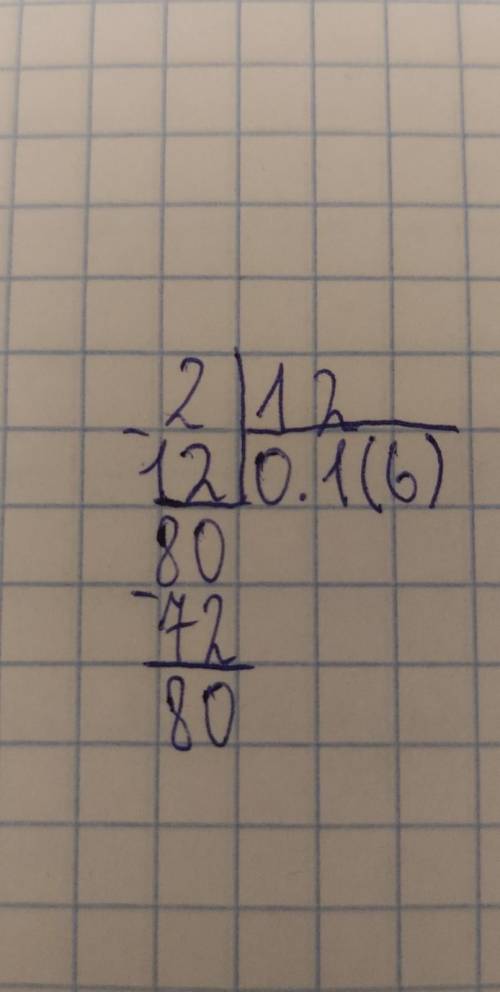 2 | 12
-12 | 0.1(6)
80
-72
80